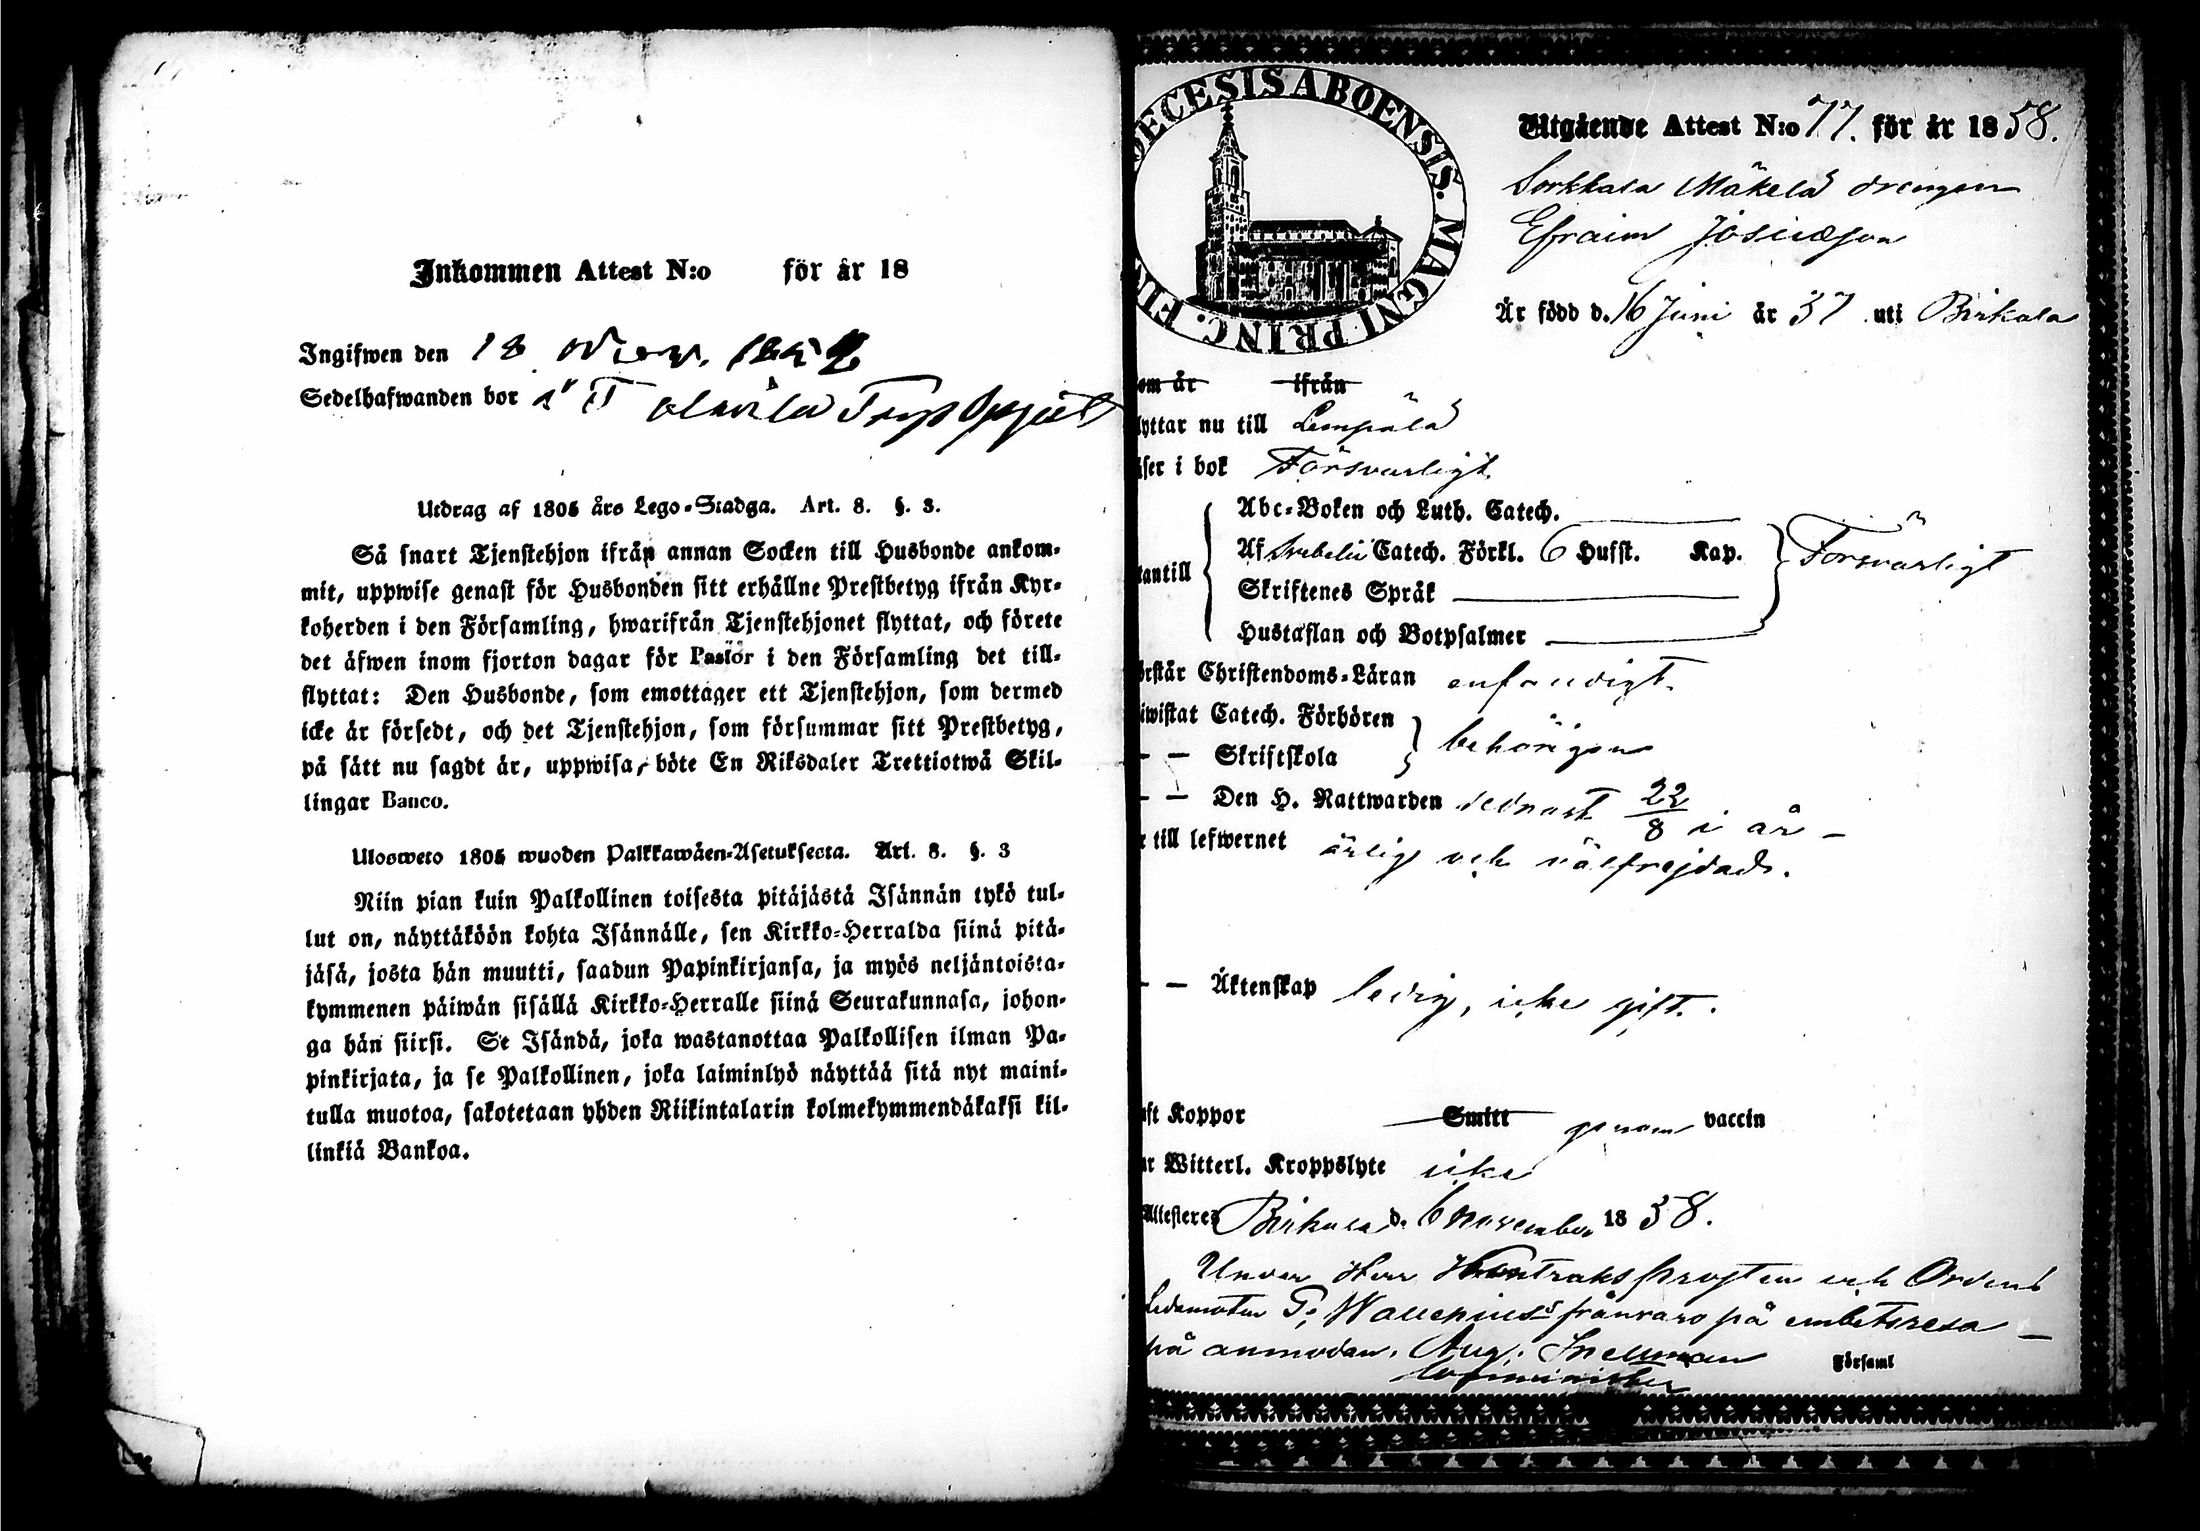 Inkommen Attest N:o för år 18
Ingifwen den 18 Nov. 185
Sedelhafwanden bor i
Utdrag af 1805 års Lego-Stadga. Art. 8. §. 3.
Så snart Tjenstehjon ifrån annan Socken till Husbonde ankom-
mit, uppwise genast för Husbonden sitt erhållne Prestbetyg ifrån Kyr-
koherden i den Församling, hwarifrån Tjenstehjonet flyttat, och förete
det äfwen inom fjorton dagar för Pastor i den Församling det till-
flyttat: Den Husbonde, som emottager ett Tjenstehjon, som dermed
icke är försedt, och det Tjenstehjon, som försummar sitt Prestbetyg,
på sätt nu sagdt är, uppwisa, böte En Riksdaler Trettiotwå Skil-
lingar Banco.
Ulosweto 1805 wuoden Palkkawäen-Asetuksesta. Art. 8. §. 3
Niin pian kuin Palkollinen toisesta pitäjästä Isännän tykö tul-
lut on, näyttäköön kohta Isännälle, sen Kirkko-Herralda siinä pitä-
jäsä, josta hän muutti, saadun Papinkirjansa, ja myös neljäntoista-
kymmenen päiwän sisällä Kirkko-Herralle siinä Seurakunnasa, johon-
ga hän siirsi. Se Isändä, joka wastanottaa Palkollisen ilman Pa-
pinkirjata, ja se Palkollinen, joka laiminlyö näyttää sitä nyt maini-
tulla muotoa, sakotetaan yhden Riikintalarin kolmekymmendäkaksi kil-
linkiä Bankoa.
DECESIS ABOENSIS. MAGNI PRINC. FIN
Utgående Attest N:o 77. för år 1858.
Sorkkala Mäkelä drengen
Efraim Josuæson
Är född d. 16 Juni år 37 uti Birkala
om år ifrån
lyttar nu till Lempälä
äser i bok Försvarligt
Abc-Boken och Luth. Catech.
Af Svebelii Catech. Förkl. 6 Hufst. Kap.
tantill Försvarligt
Skriftenes Språk
Hustaflan och Botpsalmer
örstår Christendoms-Läran enfaldigt.
iwistat Catech. Förhören
— — Skriftskola behörigen
— — Den H. Nattwarden sednast 22/8 i år —
r till lefwernet ärlig och välfrejdad.
— — Äktenskap ledig, icke gift.
ft Koppor Smitt genom vaccin
ar Witterl. Kroppslyte icke
Attesteres Birkala d. 6 November 1858.
Under Herr Kontraktsprosten och Ordens
Ledamoten frånvaro på embetsresa —
på anmodan. Aug. Snellman
Comminister
Församl